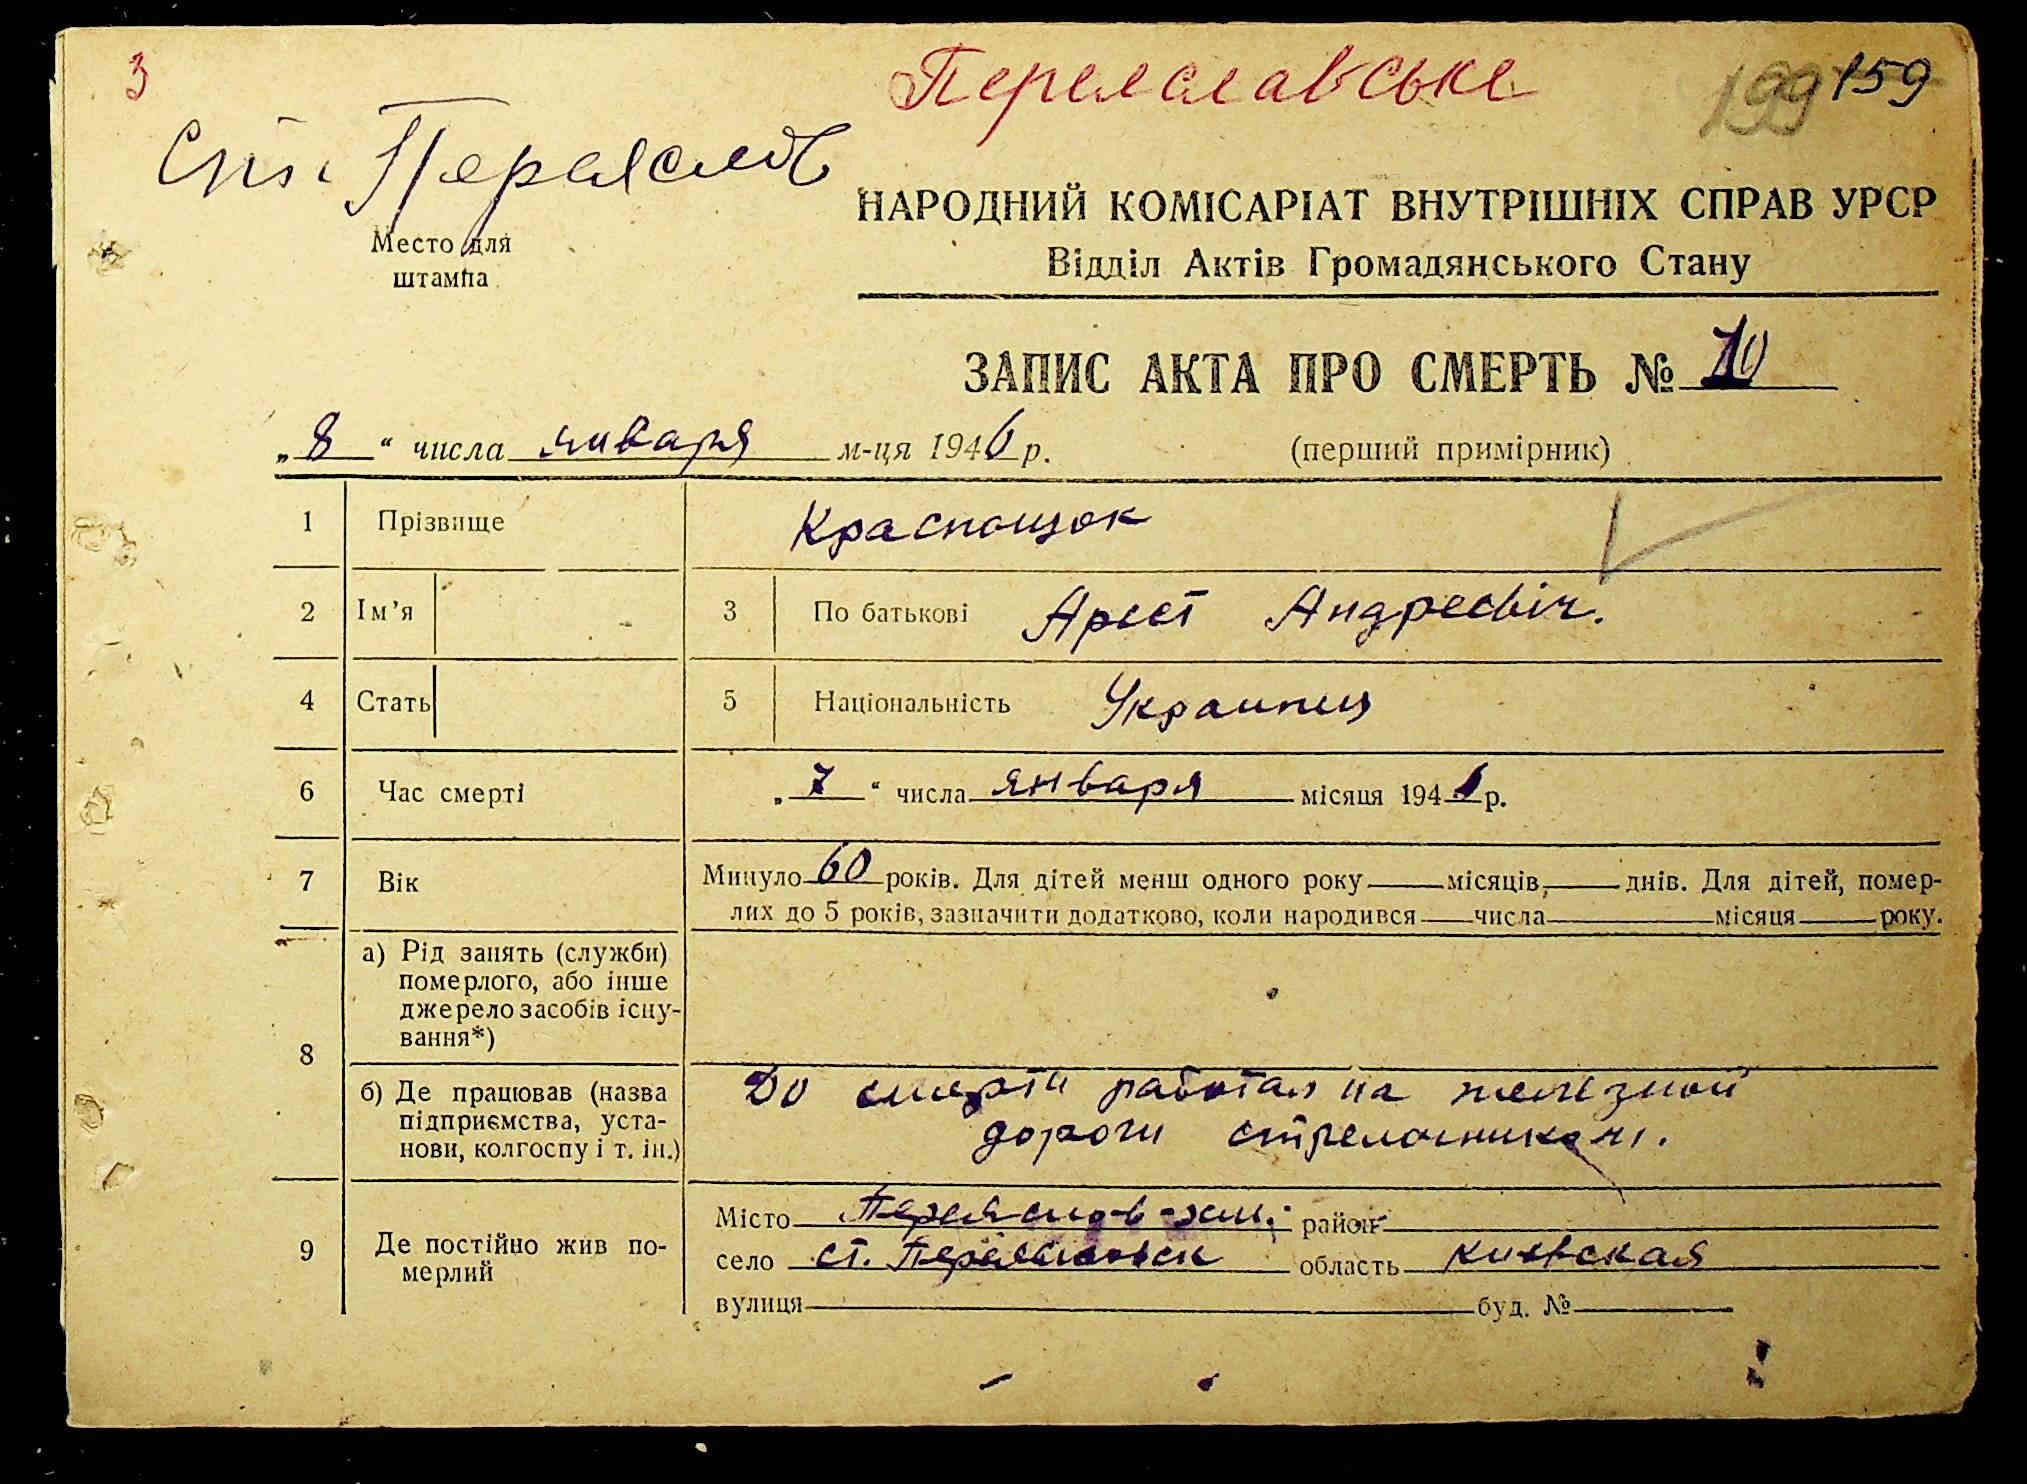 3
Переяславське
199 159
Переяслов
Место для
штампа
НАРОДНИЙ КОМІСАРІАТ ВНУТРІШНІХ СПРАВ УРСР
Відділ Актів Громадянського Стану
ЗАПИС АКТА ПРО СМЕРТЬ № 10
„8“ числа января м-ця 1946 р. (перший примірник)
1 Прізвище Краснощок
2 Ім'я 3 По батькові Арест Андреевіч.
4 Стать 5 Національність Украинец
6 Час смерті „7“ числа января місяця 1946 р.
7 Вік Минуло 60 років. Для дітей менш одного року місяців, днів. Для дітей, помер-
лих до 5 років, зазначити додатково, коли народився числа місяця року.
8 а) Рід занять (служби)
померлого, або інше
джерело засобів існу-
вання*)
б) Де працював (назва До смерти работал на железной
підприємства, уста- дороги стрелочником.
нови, колгоспу і т. ін.)
9 Де постійно жив по-
мерлий
Місто район
село ст. Переяславск область Киевская
вулиця буд. №